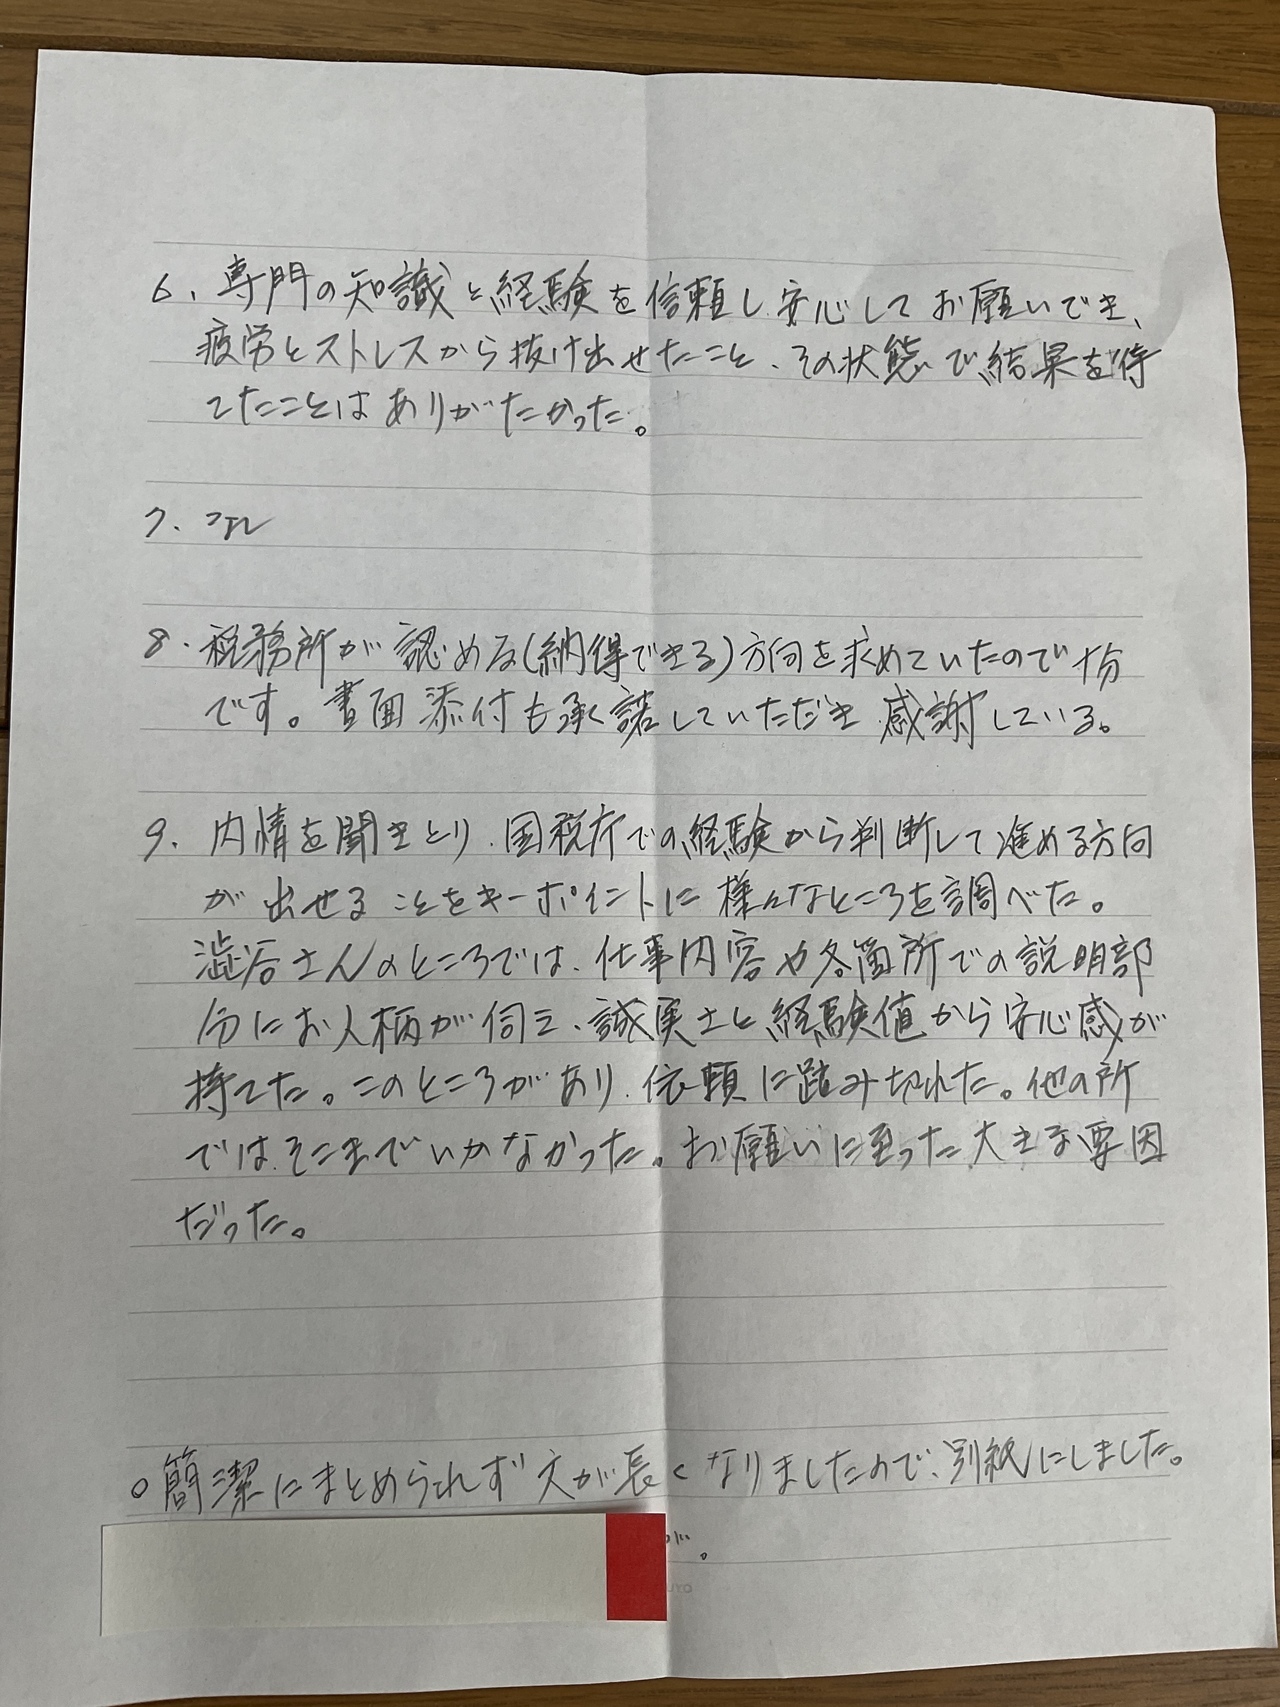 6. 専門の知識と経験を信頼し、安心してお願いでき、
疲労とストレスから抜け出せたこと、その状態で結果を待
てたことはありがたかった。
7. なし
8. 税務所が認める(納得できる)方向を求めていたので十分
です。書面添付も承諾していただき感謝している。
9. 内情を聞きとり、国税庁での経験から判断して進める方向
が出せることをキーポイントに様々なところを調べた。
澁谷さんのところでは、仕事内容や各箇所での説明部
分にお人柄が伺え、誠実さと経験値から安心感が
持てた。このところがあり、依頼に踏み切れた。他の所
ではそこまでいかなかった。お願いに至った大きな要因
だった。
○簡潔にまとめられず文が長くなりましたので、別紙にしました。